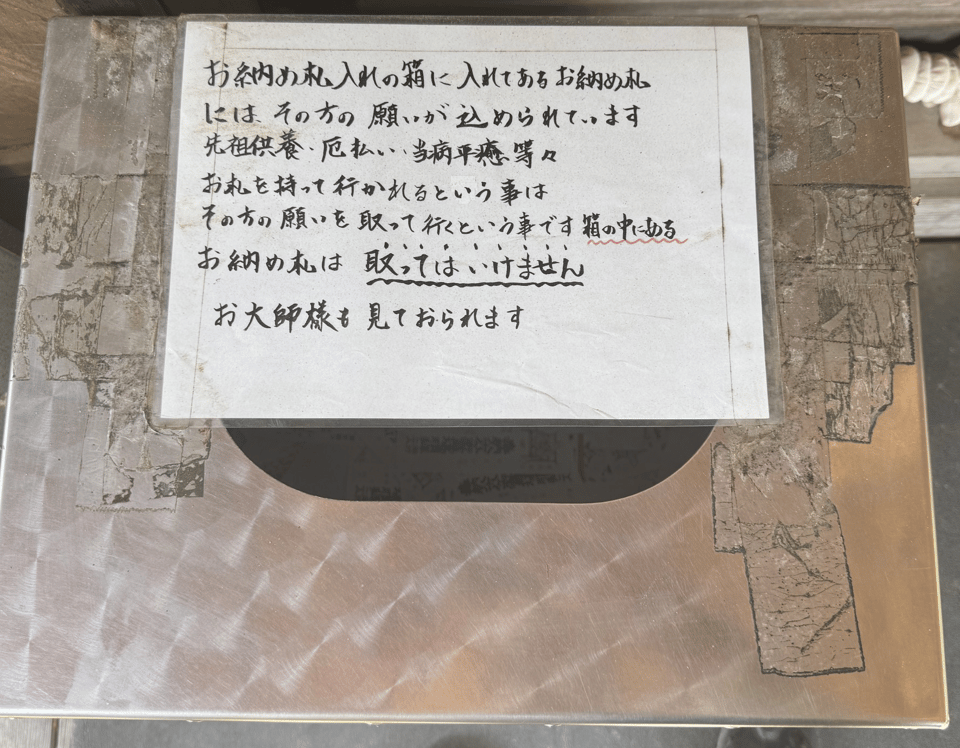 お納め札入れの箱に入れてあるお納め札
には その方の願いが込められています
先祖供養・厄払い・当病平癒 等々
お札を持って行かれるという事は
その方の願いを取って行くという事です 箱の中にある
お納め札は 取ってはいけません
お大師様も見ておられます